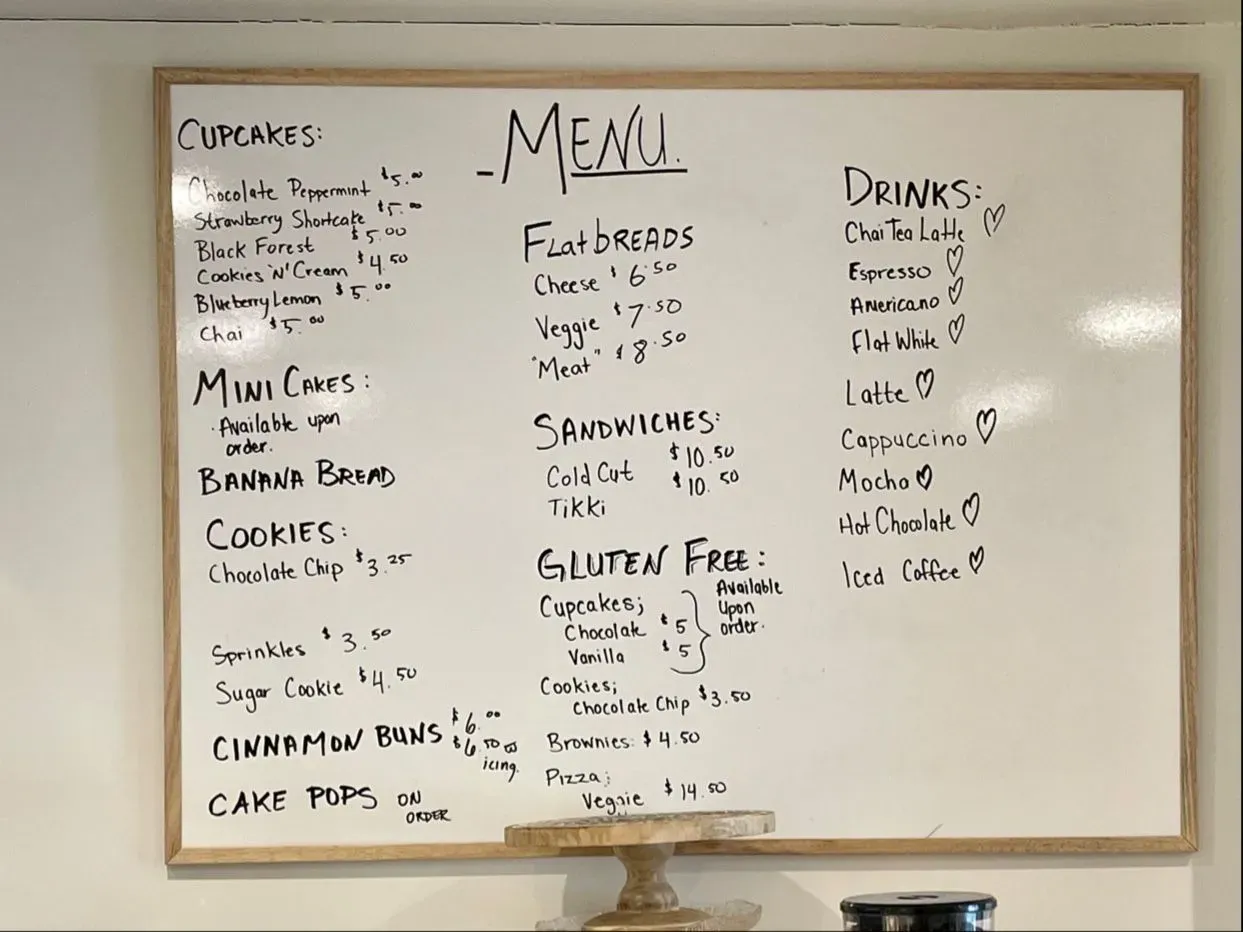 MENU.
CUPCAKES:
Chocolate Peppermint $5.00
Strawberry Shortcake $5.00
Black Forest $5.00
Cookies 'N' Cream $4.50
Blueberry Lemon $5.00
Chai $5.00
MINI CAKES:
· Available upon
order.
BANANA BREAD
COOKIES:
Chocolate Chip $3.25
Sprinkles $3.50
Sugar Cookie $4.50
CINNAMON BUNS $6.00
$6.50
icing.
CAKE POPS ON
ORDER
FLatbREADS
Cheese $6.50
Veggie $7.50
"Meat" $8.50
SANDWICHES:
Cold Cut $10.50
Tikki $10.50
GLUTEN FREE:
Cupcakes;
Chocolate $5
Vanilla $5
Available
Upon
order.
Cookies;
Chocolate Chip $3.50
Brownies: $4.50
Pizza;
Veggie $14.50
DRINKS:
Chai Tea Latte ♡
Espresso ♡
Americano ♡
Flat White ♡
Latte ♡
Cappuccino ♡
Mocha ♡
Hot Chocolate ♡
Iced Coffee ♡